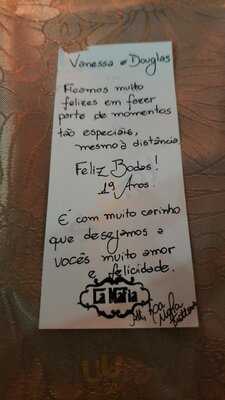 Vanessa e Douglas
Ficamos muito
felizes em fazer
parte de momentos
tão especiais,
mesmo à distância
Feliz Bodas!
19 Anos.
É com muito carinho
que desejamos a
vocês muito amor
e felicidade.
La Máfia